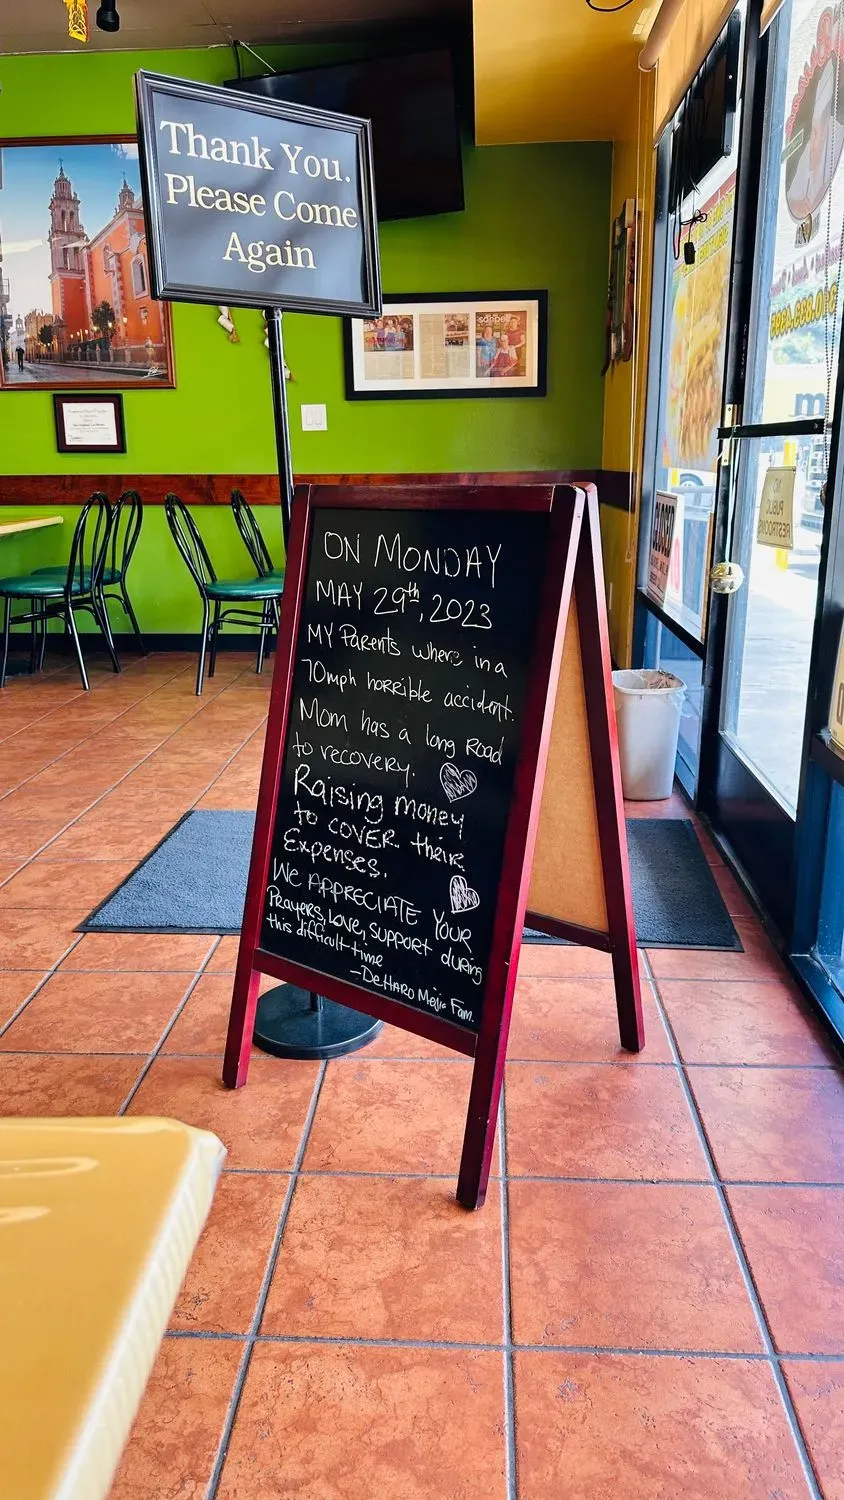 Thank You.
Please Come
Again
ON MONDAY
MAY 29th, 2023
MY Parents where in a
70mph horrible accident.
Mom has a long Road
to recovery.
Raising money
to COVER theire
Expenses.
WE APPRECIATE YOUR
PRAYERS, LOVE, SUPPORT during
this difficult time
- DeHARO Mejia Fam.
CLOSED
NO
PUBLIC
RESTROOMS